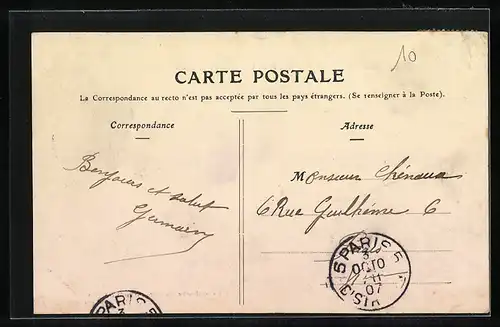 10
CARTE POSTALE
La Correspondance au recto n'est pas acceptée par tous les pays étrangers. (Se renseigner à la Poste).
Correspondance
Adresse
Bonjour et salut
Germain
Monsieur Chénaux
6 Rue 6
5 PARIS 5
OCTO
07
PARIS